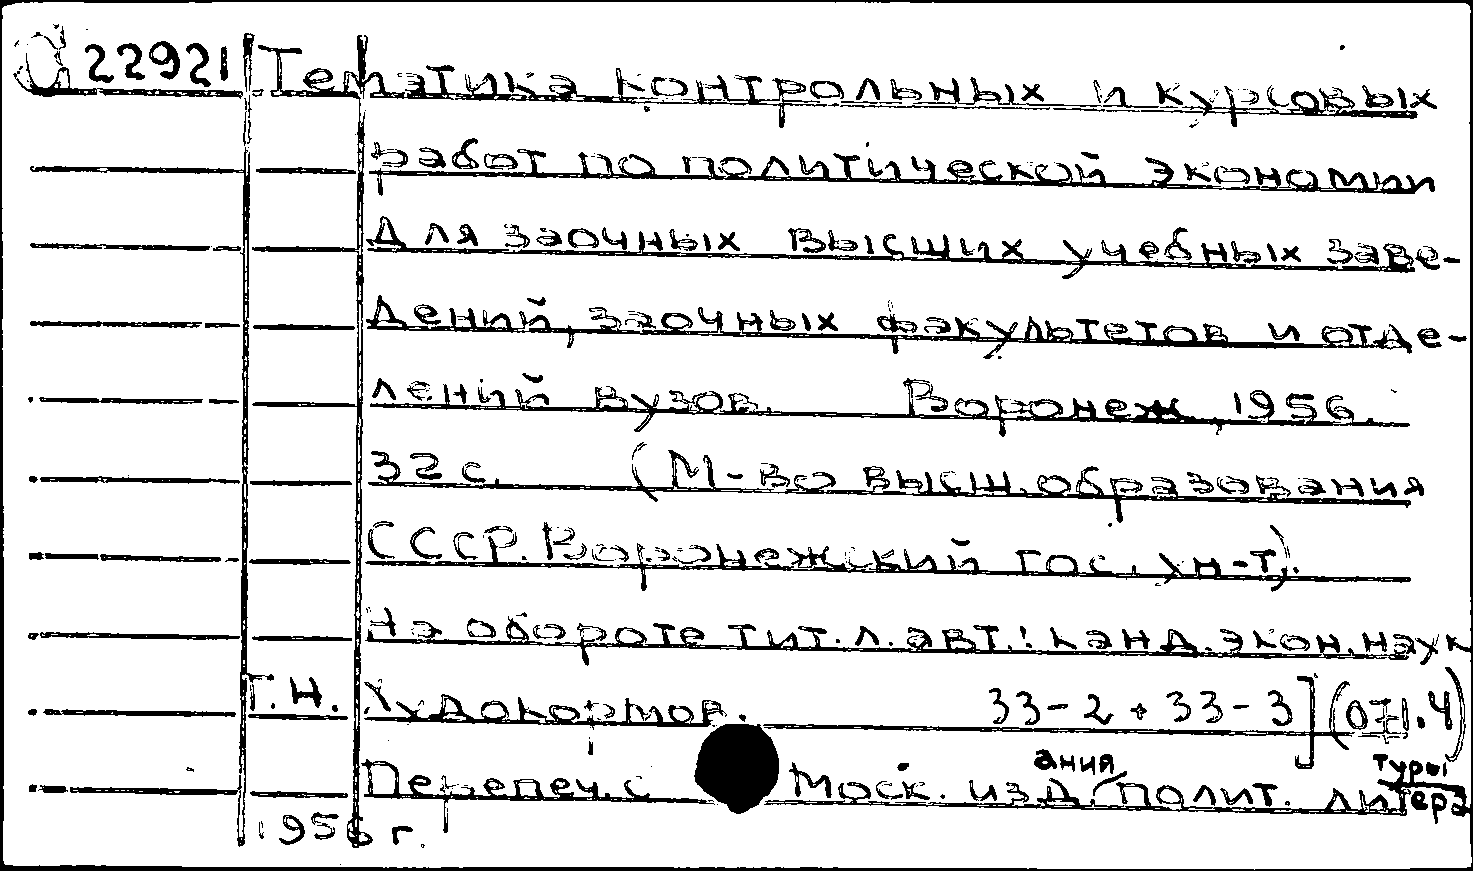 С 22921 Тематика контрольных и курсовых
работ по политической экономии
для заочных высших учебных заве-
дений, заочных факультетов и отде-
лений вузов. Воронеж, 1956.
32 с. (М-во высш. образования
СССР. Воронежский гос. ун-т).
На обороте тит. л. авт.: канд. экон. наук
Г.Н. Худокормов. 33-2 + 33-3] (071.4)
Перепеч. с Моск. издания полит. литературы
1956 г.